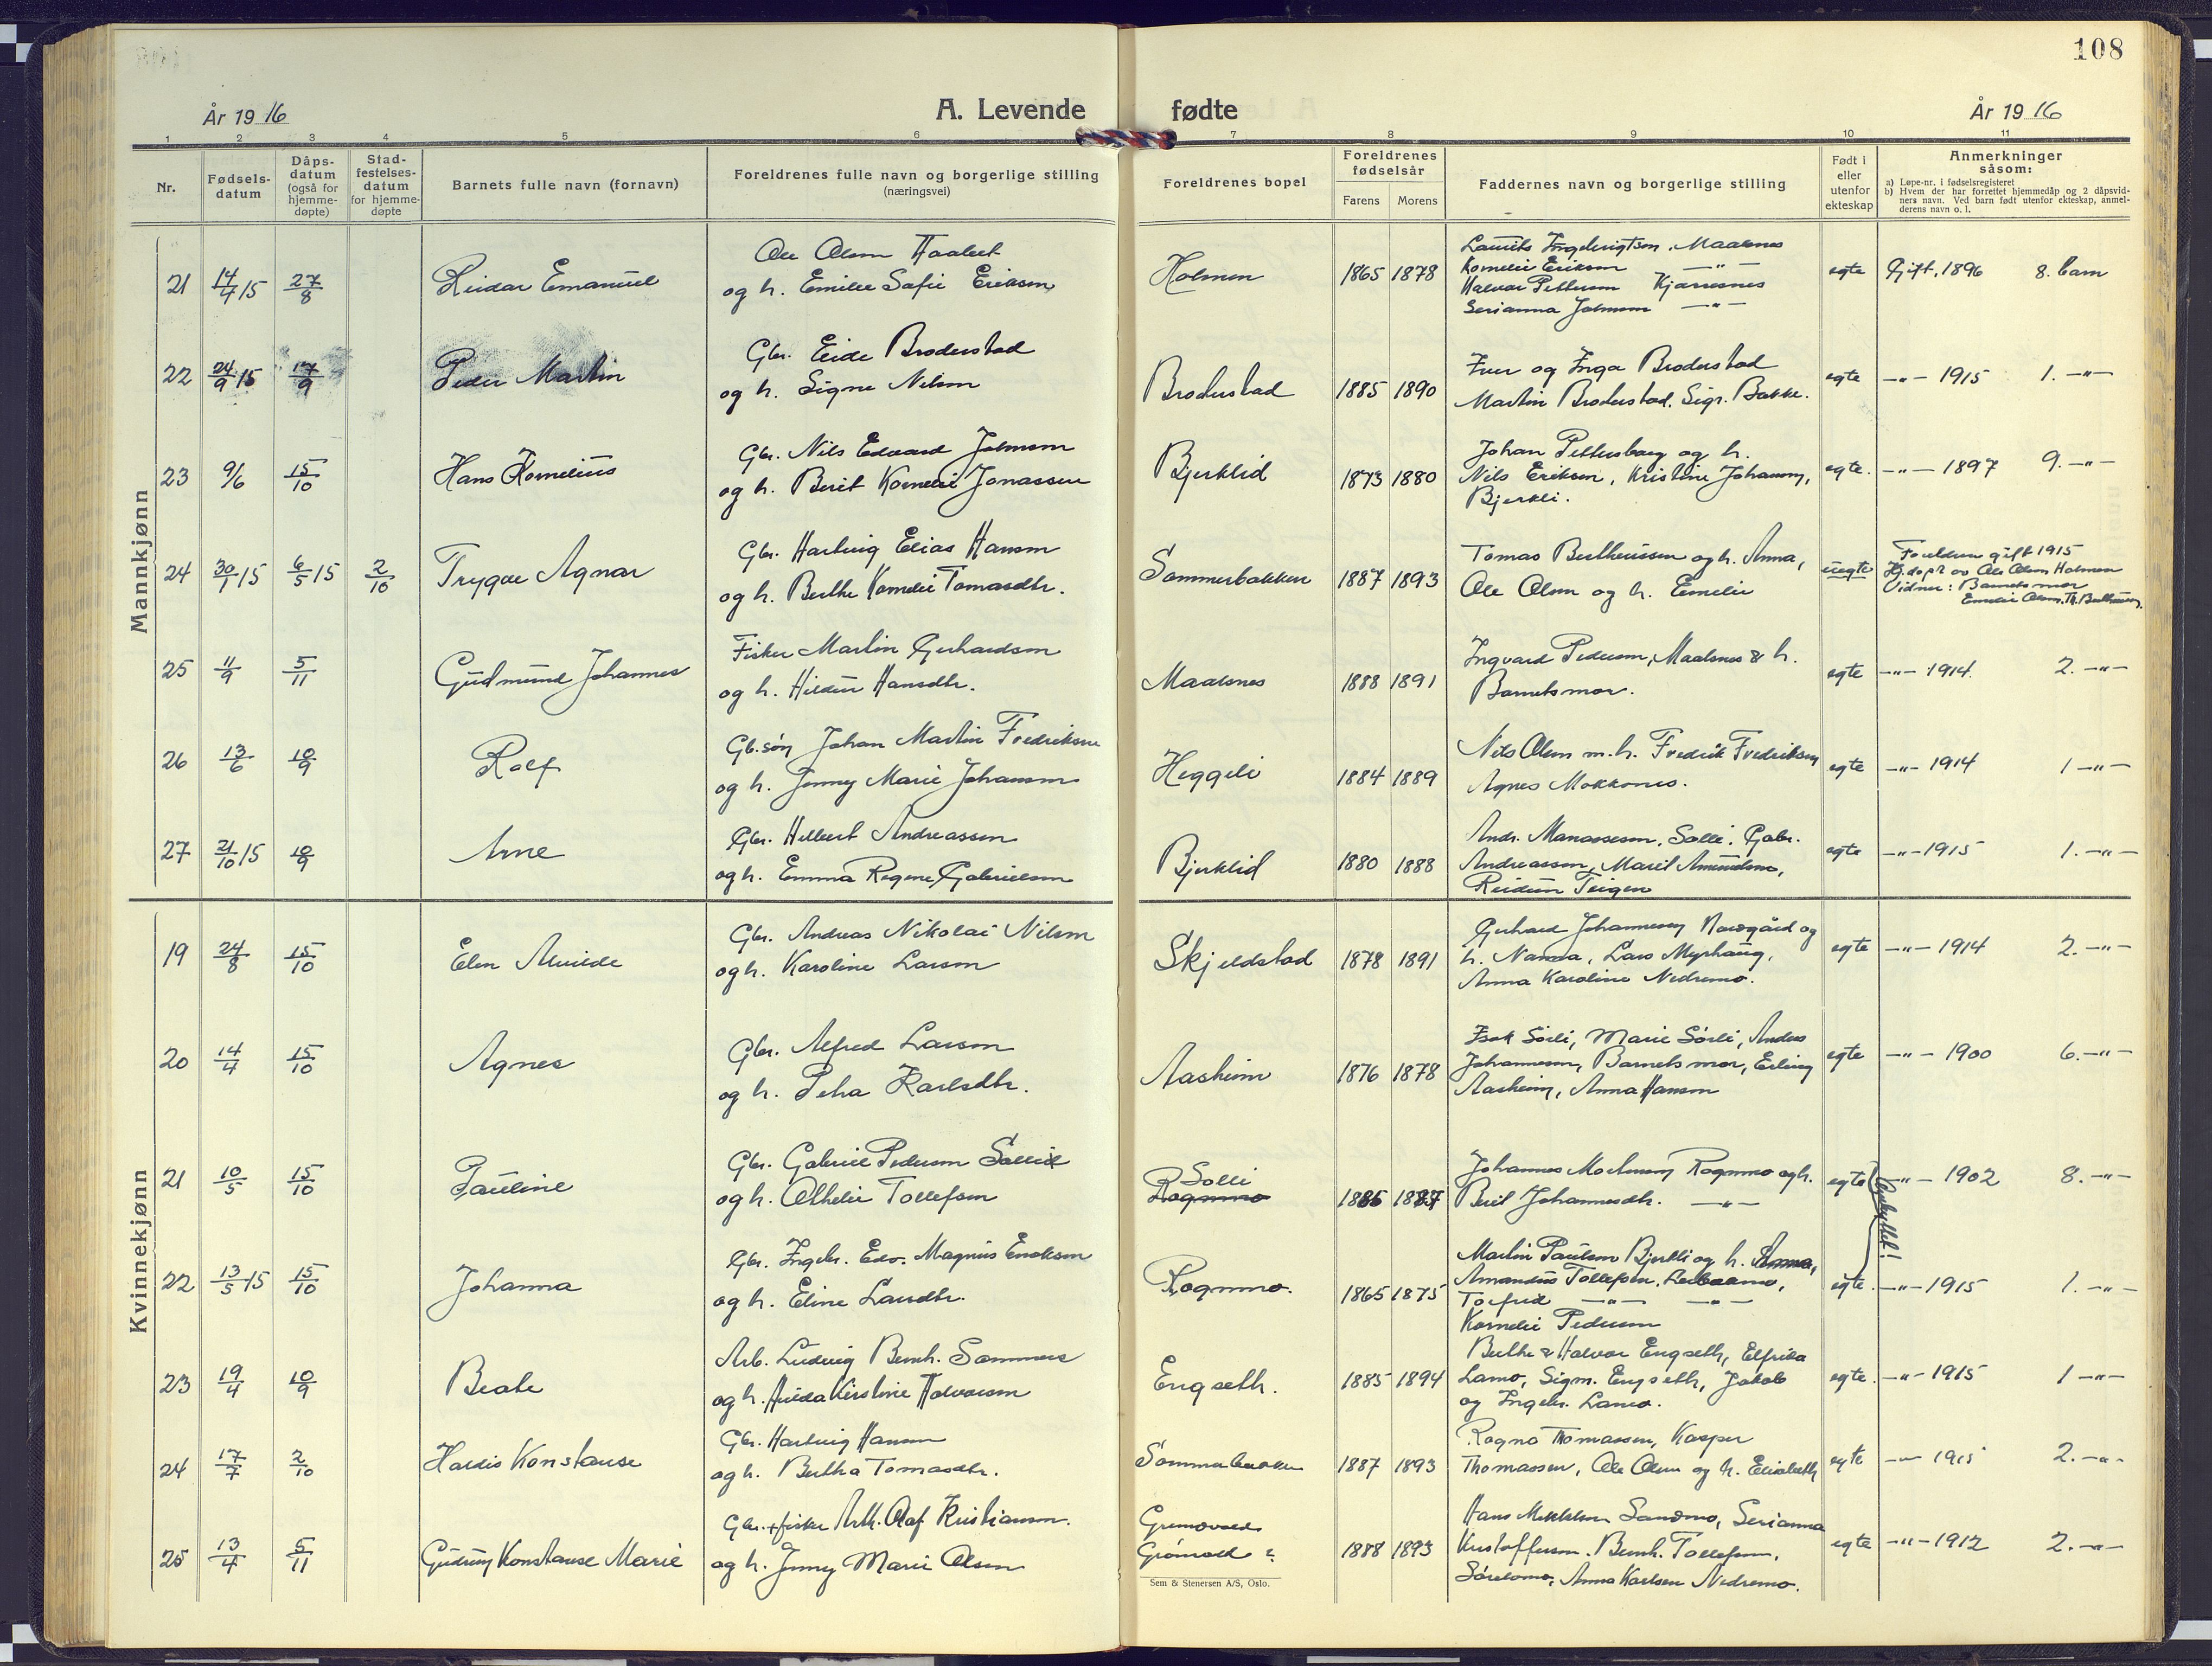 108
År 1916
A. Levende
fødte
År 1916
1 2 3 4 5 6 7 8 9 10 11
Nr.
Fødsels-
datum
Dåps-
datum
(også for
hjemme-
døpte)
Stad-
festelses-
datum
for hjemme-
døpte
Barnets fulle navn (fornavn)
Foreldrenes fulle navn og borgerlige stilling
(næringsvei)
Foreldrenes bopel
Foreldrenes
fødselsår
Farens Morens
Faddernes navn og borgerlige stilling
Født i
eller
utenfor
ekteskap
Anmerkninger
såsom:
a) Løpe-nr. i fødselsregisteret
b) Hvem der har forrettet hjemmedåp og 2 dåpsvid-
ners navn. Ved barn født utenfor ekteskap, anmel-
derens navn o. l.
Mannkjønn
21 14/4 15 27/8 Reidar Emanuel
Ole Olsen
og h. Emilie Sofie Eriksen
Holmen 1865 1878
Maalsnes
Kornelie Eriksen —"—
Halvor Pettersen Kjærresnes
Serianna Johnsen —"—
egte Gift, 1896 8. barn
22 24/9 15 17/9 Peder Martin
Gbr. Eide Broderstad
og h. Signe Nilsen
Broderstad 1885 1890
Iver og Inga Broderstad
Martin Broderstad, Sigr. Bakke.
egte —"— 1915 1. —"—
23 9/6 15/10 Hans Kornelius
Gbr. Nils Edvard Johnsen
og h. Berit Kornelie Jonassen
Bjerklid 1873 1880
Johan Pettersborg og h.
Nils Eriksen, Kristine Johansen,
Bjerkli.
egte. —"— 1897 9. —"—
24 30/1 15 6/5 15 2/10 Trygve Agnar
Gbr. Hartvig Elias Hansen
og h. Berthe Kornelie Tomasdtr.
Sommerbakken 1887 1893
Tomas Bertheussen og h. Anna,
Ole Olsen og h. Emelie
uegte
Foreldren gift 1915
Hj.døpt av Ole Olsen Holmen
Vidner: Barnets mor
Emelie Olsen, Th. Bertheussen.
25 11/9 5/11 Gudmund Johannes
Fisker Martin Gerhardsen
og h. Hildur Hansdtr.
Maalsnes 1888 1891
Ingvard Pedersen, Maalsnes & h.
Barnets mor.
egte —"— 1914. 2. —"—
26 13/6 10/9 Rolf
Gb.søn Johan Martin Fredriksen
og h. Jenny Marie Johansen
Heggeli 1884 1889
Nils Olsen m. h. Fredrik Fredriksen
Agnes Mokkones.
egte —"— 1914 1 —"—
27 21/10 15 10/9 Arne
Gbr. Hilbert Andreassen
og h. Emma Regine Gabrielsen
Bjerklid 1880 1888
Andr. Manassesen, Solli, Gabr.
Andreassen, Maril Amundsen,
Reidun Teigen
egte —"— 1915 1. —"—
Kvinnekjønn
19 24/8 15/10 Elen Alvilde
Gbr. Andreas Nikolai Nilsen
og h. Karoline Larsen
Skjeldstad 1878 1891
Gerhard Johannesen Nordgård og
h. Nanna, Lars Myrhaug,
Anna Karoline Nedremo.
egte —"— 1914 2. —"—
20 14/4 15/10 Agnes
Gbr. Alfred Larsen
og h. Petra Karlsdtr.
Aasheim 1876 1878
Isak Sørli, Marie Sørli, Anders
Johannesen, Barnets mor, Erling
Aasheim, Anna Hansen
egte —"— 1900 6. —"—
21 10/5 15/10 Pauline
Gbr. Gabriel Pedersen Sollid
og h. Othelie Tollefsen
Solli
Rognmo 1885 1887
Johannes Mortensen Rognmo og h.
Beril Johannesdtr. —"—
egte —"— 1902 8. —"—
22 13/5 15 15/10 Johanna
Gbr. Ingebr. Edv. Magnus Enoksen
og h. Eline Larsdtr.
Rognmo. 1865 1875
Martin Paulsen Bjerkli og h. Anna,
Amandus Tollefsen,
Torfrid —"— —"—
Kornelie Pedersen
egte. —"— 1915 1. —"—
23 19/4 10/9 Beate
Arb. Ludvig Bernh. Sommers
og h. Hulda Kirstine Halvorsen
Engseth. 1885 1894
Berthe & Halvor Engseth, Elfrida
Lamo, Sigm. Engseth, Jakob
og Ingebr. Lamo.
egte. —"— 1915 1 —"—
24 17/7 2/10 Hardis Konstanse
Gbr. Hartvig Hansen
og h. Bertha Tomasdtr.
Sommerbakken 1887 1893
Ragna Thomassen, Kasper
Thomassen, Ole Olsen og h. Elisabeth
egte —"— 1915 2. —"—
25 13/4 5/11 Gudrun Konstanse Marie
Gbr. + fisker Arth. Olaf Kristiansen.
og h. Jenny Marie Olsen
1888 1893
Hans Mikkelsen Sandmo, Serianna
Kristoffersen. Bernh. Tollefsen,
Anna Karlsen Nedremo.
egte —"— 1912 2. —"—
Sem & Stenersen A/S, Oslo.